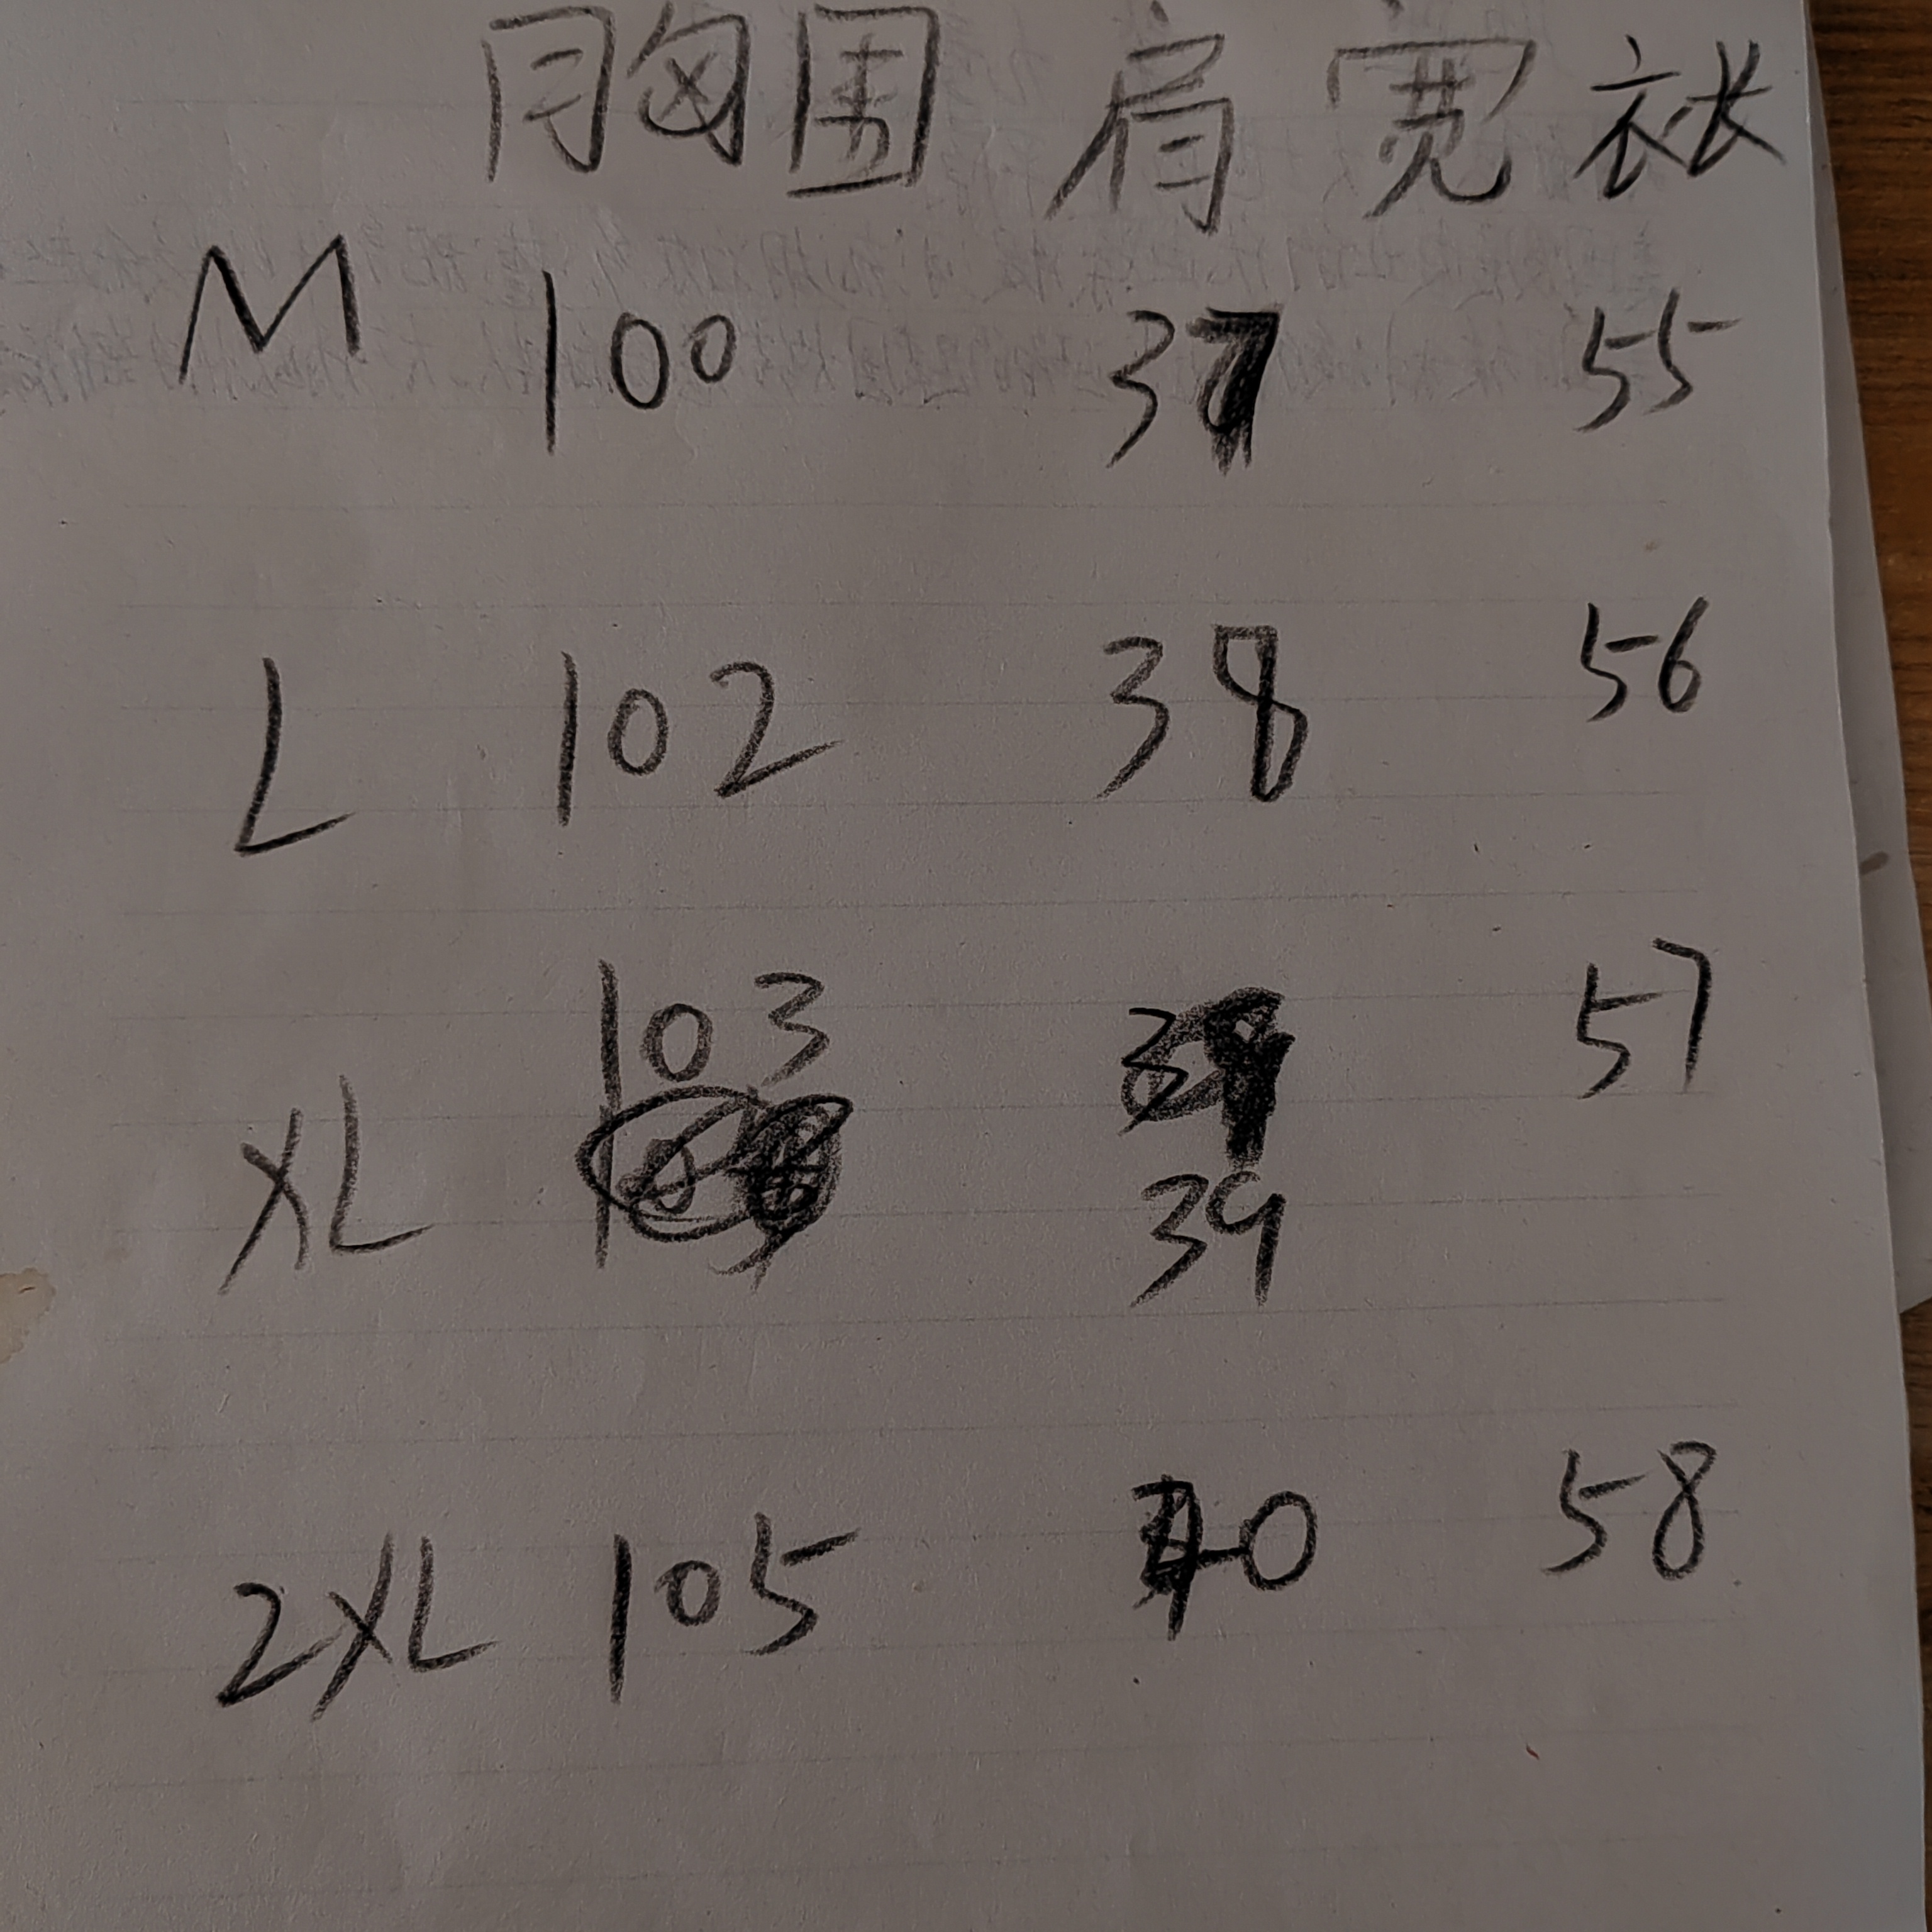 胸围 肩宽 衣长
M 100 37 55
L 102 38 56
XL 103 39 57
2XL 105 40 58